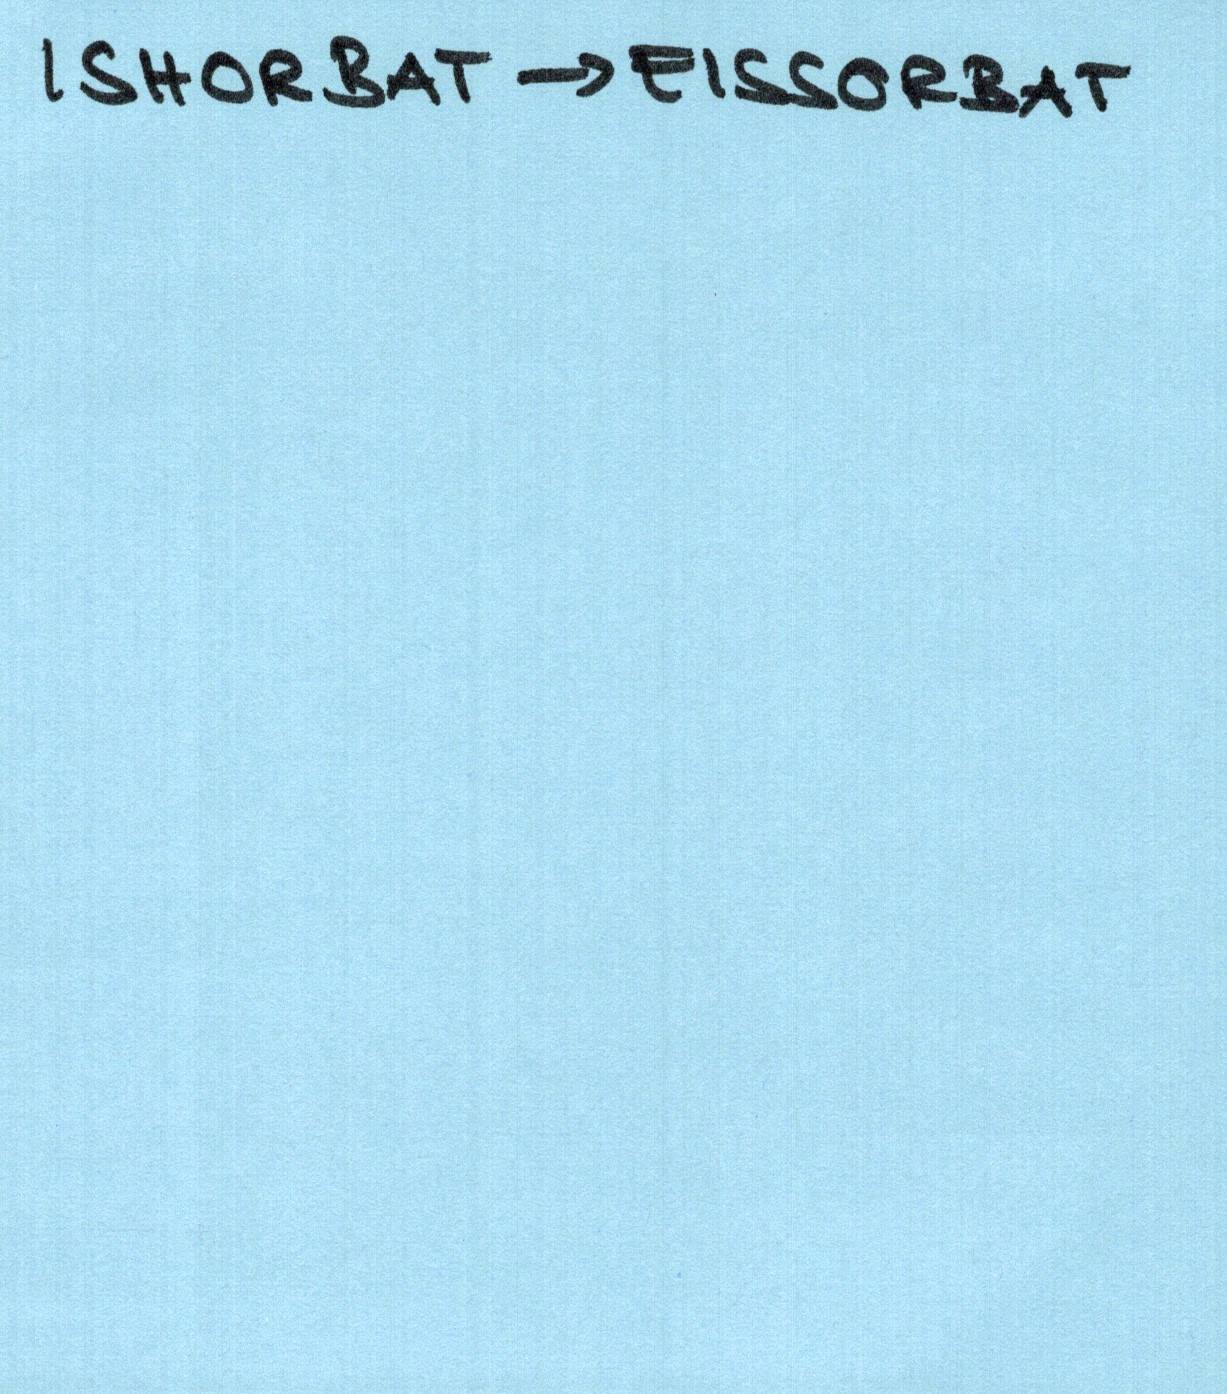 ISHORBAT → EISSORBAT